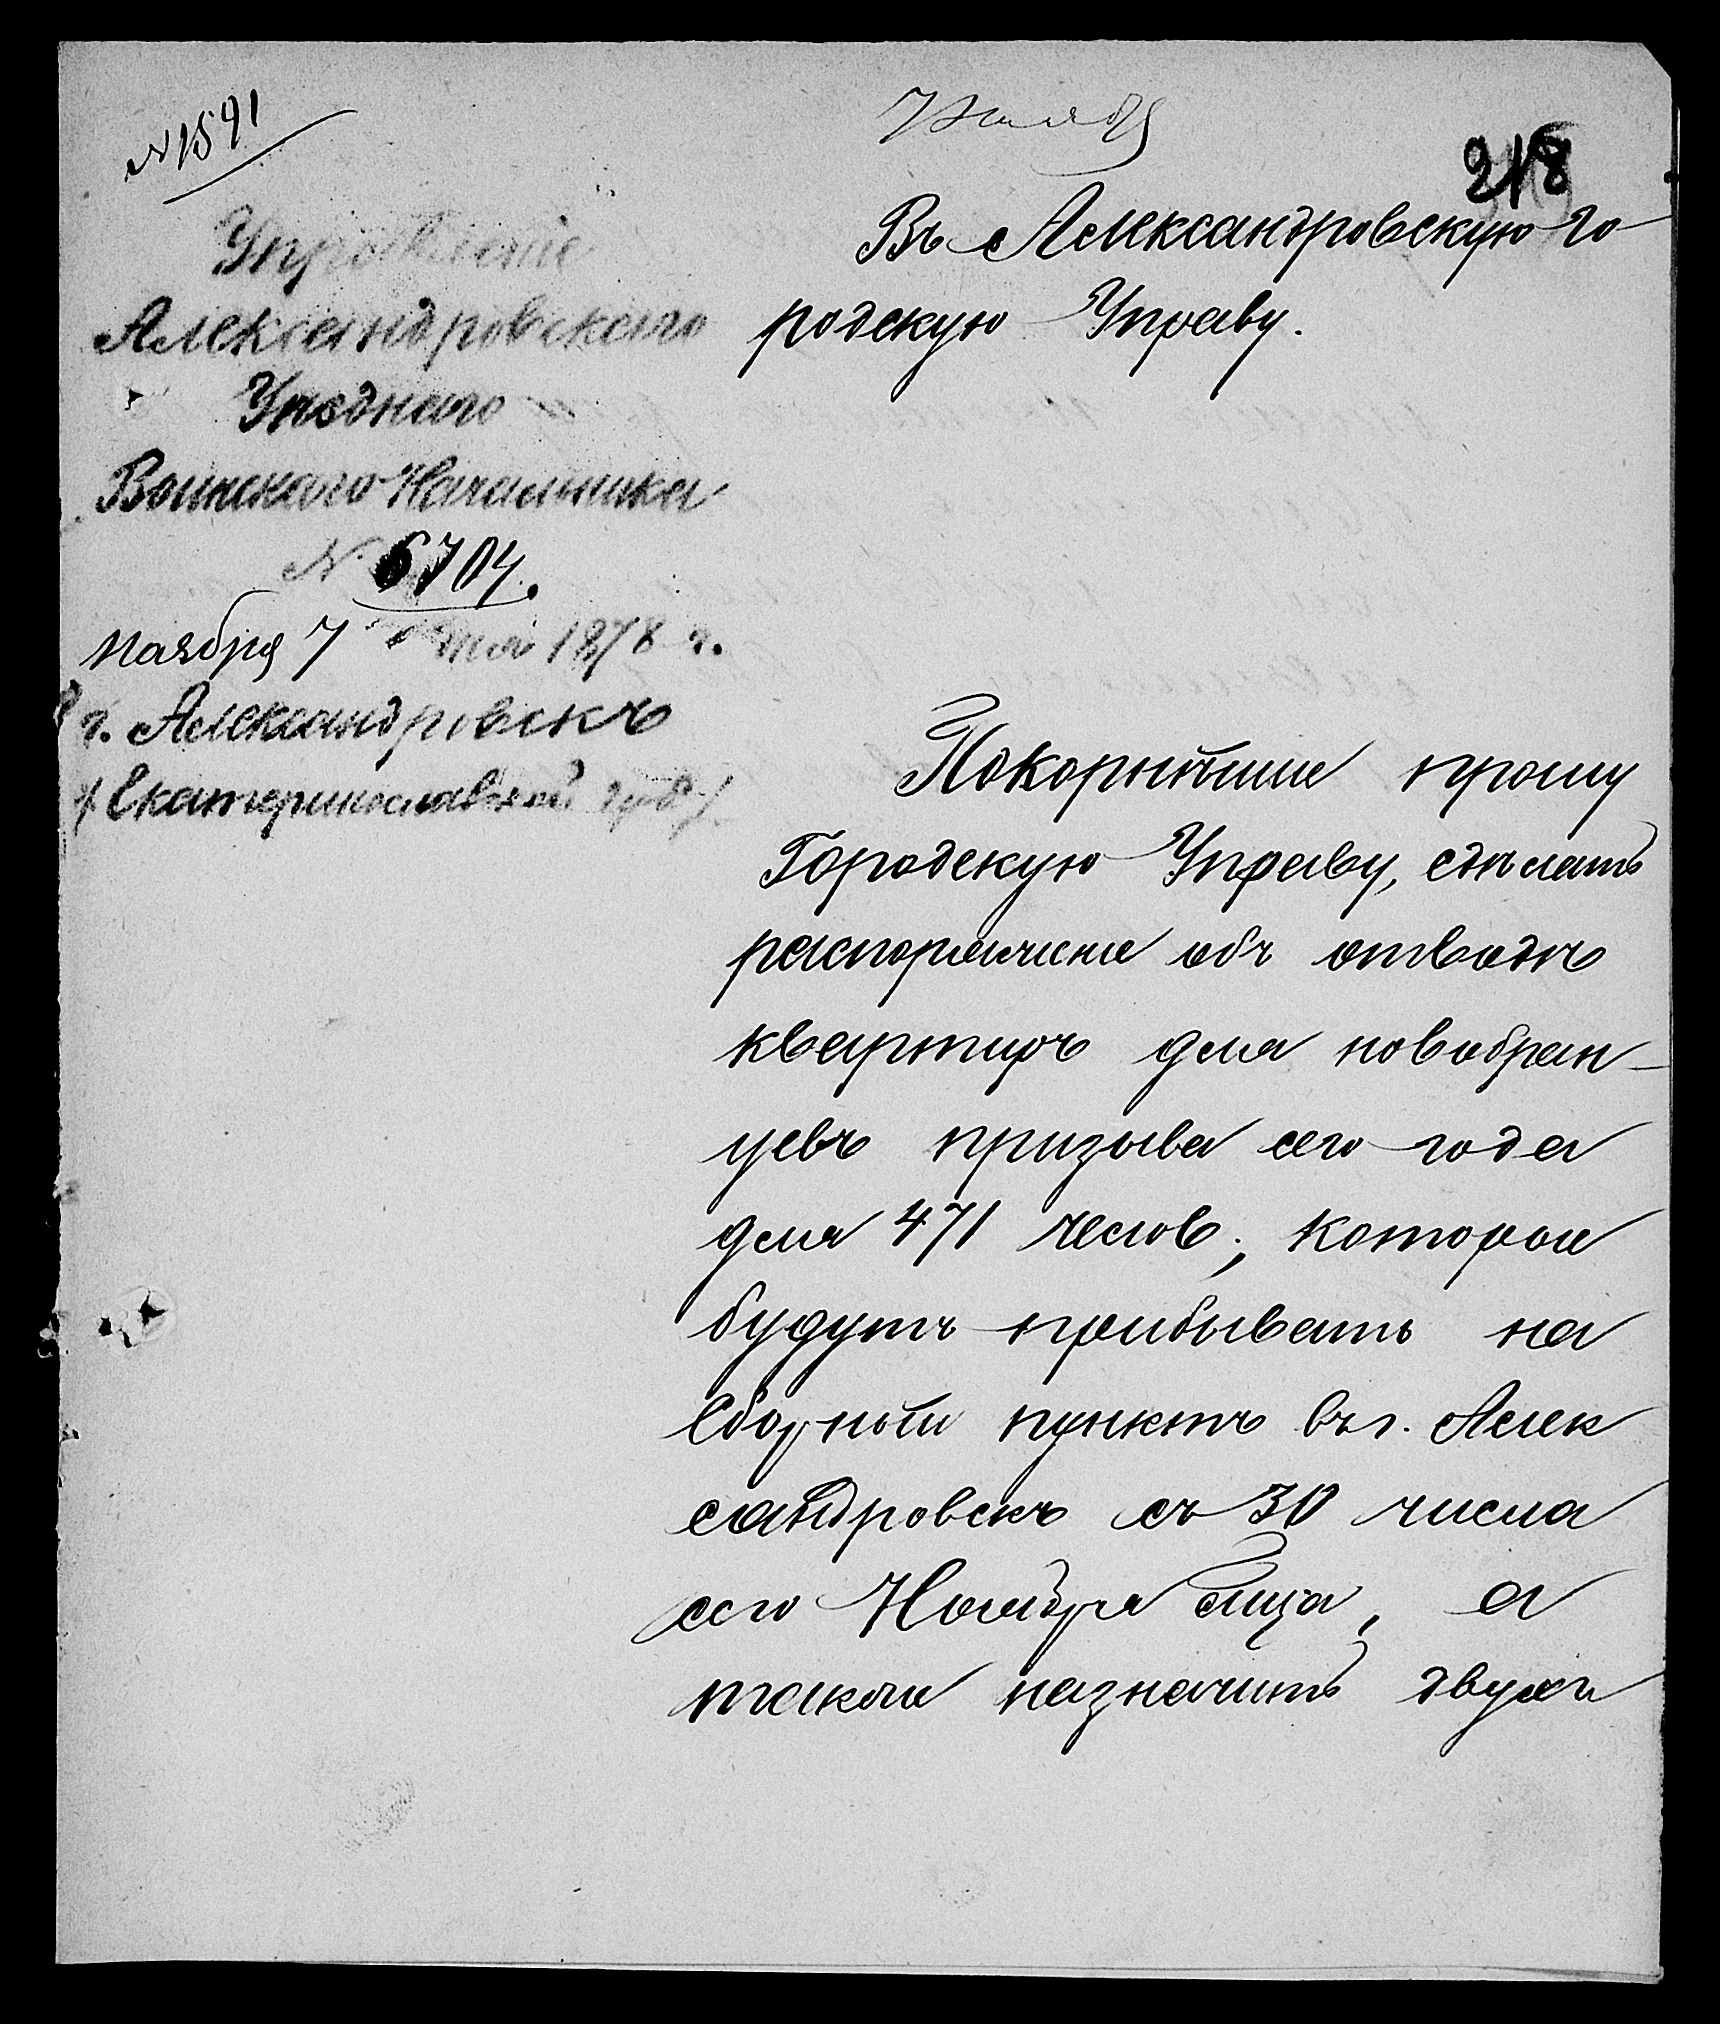 № 1591
7 Ноября
218
Управленіе
Александровскаго
Уѣзднаго
Воинскаго Начальника
№ 6704.
Ноября 7 дня 1878 г.
г. Александровскъ
/Екатеринославской губ./
Въ Александровскую Го
родскую Управу.
Покорнѣйше прошу
Городскую Управу, сдѣлать
распоряженіе объ отводѣ
квартиръ для новобран-
цевъ призыва сего года
для 471 челов., которые
будутъ прибывать на
Сборный пунктъ въ г. Алек
сандровскъ съ 30 числа
сего Ноября м̃ца, а
также назначить двухъ